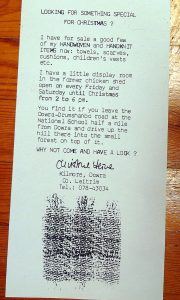 LOOKING FOR SOMETHING SPECIAL
FOR CHRISTMAS ?
I have for sale a good few
of my HANDWOVEN and HANDKNIT
ITEMS now: towels, scarves,
cushions, children's vests
etc.
I have a little display room
in the former chicken shed
open on every Friday and
Saturday until Christmas
from 2 to 6 pm.
You find it if you leave the
Dowra-Drumshanbo road at the
National School half a mile
from Dowra and drive up the
hill there into the small
forest on top of it.
WHY NOT COME AND HAVE A LOOK ?
Kilmore, Dowra
Co. Leitrim
Tel.: 078-43034